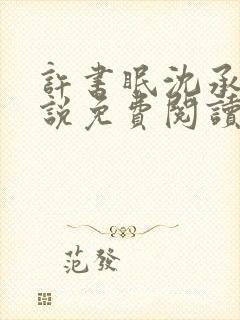 許書眠沈承
說免費閱讀
范發